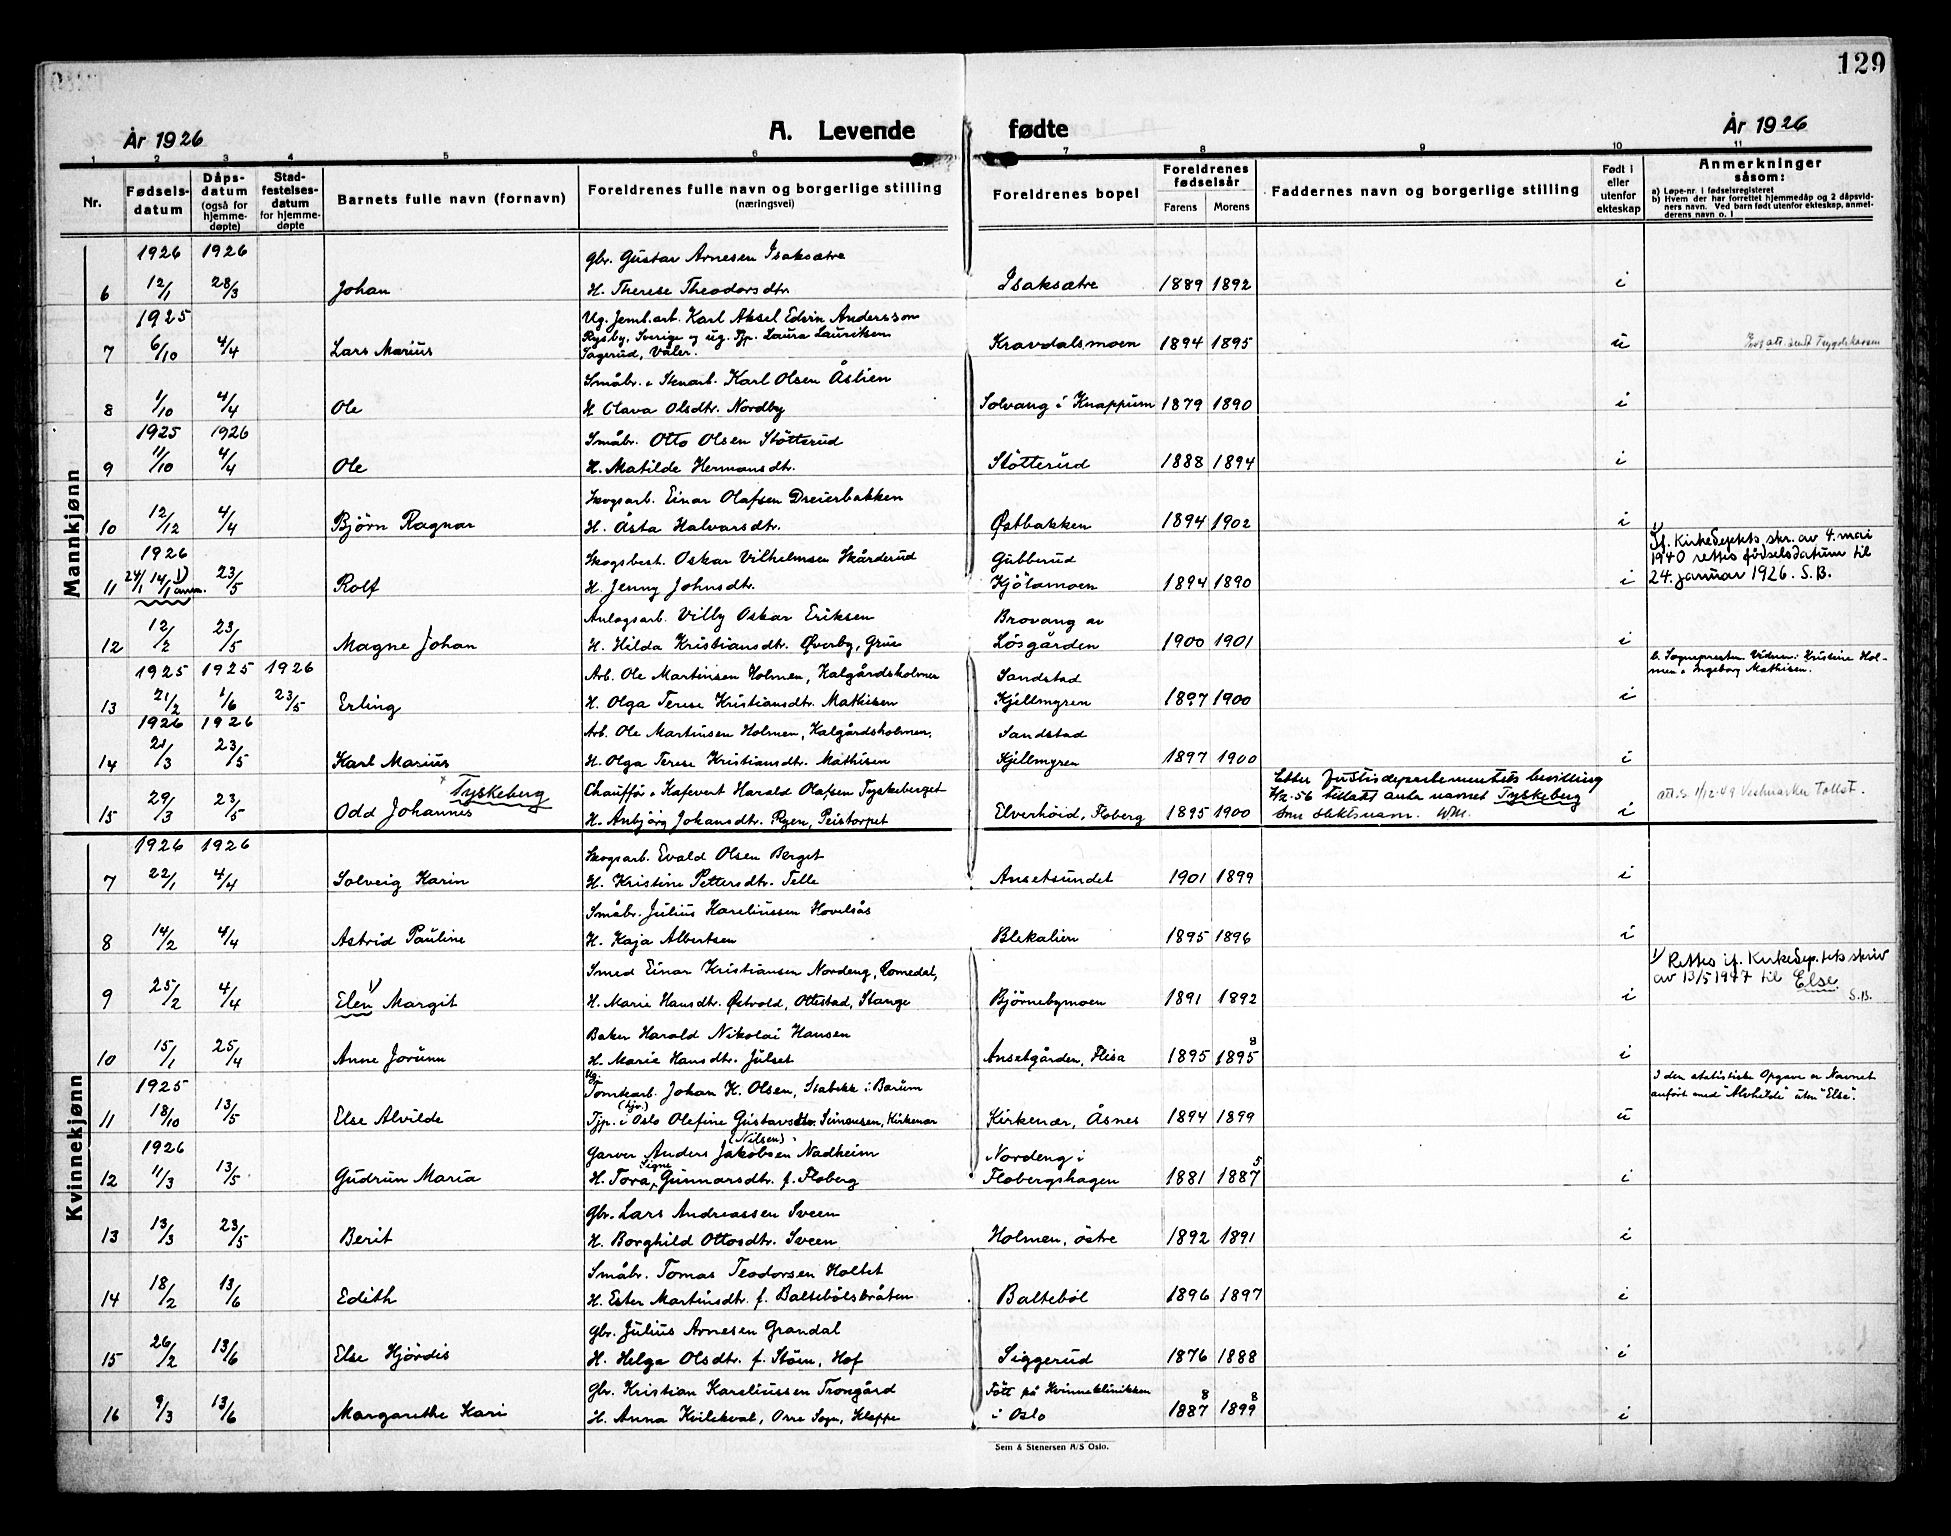 129
År 1926 A. Levende fødte År 1926
1 2 3 4 5 6 7 8 9 10 11
Nr. Fødsels-datum Dåps-datum (også for hjemme-døpte) Stad-festelses-datum for hjemme-døpte Barnets fulle navn (fornavn) Foreldrenes fulle navn og borgerlige stilling (næringsvei) Foreldrenes bopel Foreldrenes fødselsår Farens Morens Faddernes navn og borgerlige stilling Født i eller utenfor ekteskap Anmerkninger såsom:
a) Løpe-nr. i fødselsregisteret
b) Hvem der har forrettet hjemmedåp og 2 dåpsvidners navn. Ved barn født utenfor ekteskap, anmelderens navn o. l
Mannkjønn
1926 1926 Gbr. Gustav Arnesen Isaksætre
6 12/1 28/3 Johan H. Therese Theodorsdtr. Isaksætre 1889 1892 i
1925 Ug. Jernb.arb. Karl Aksel Edvin Andersson
Rysby, Sverige og ug. Tjp. Laura Lauritsen
7 6/10 4/4 Lars Marius Sagerud, Våler. Kravdalsmoen 1894 1895 u
Småbr. & Stenarb. Karl Olsen Åslien
8 1/10 4/4 Ole H Olava Olsdtr. Nordby Solvang i Knappum 1879 1890 i
1925 1926 Småbr. Otto Olsen Støtterud
9 11/10 4/4 Ole H. Matilde Hermansdtr. Støtterud 1888 1894 i
Skogsarb. Einar Olafsen Dreierbakken
10 12/12 4/4 Bjørn Ragnar H. Åsta Halvarsdtr. Østbakken 1894 1902 i
1926 Skogsbest. Oskar Vilhelmsen Skårderud Gubberud
11 24/1 14/1 1) anm. 23/5 Rolf H. Jenny Johnsdtr. Kjølamoen 1894 1890 i
1) If. Kirkedepts skr. av 4. mai
1940 rettes fødselsdatum til
24. januar 1926. S.B.
Anlagsarb. Villy Oskar Eriksen Brovang av
12 12/2 23/5 Magne Johan H. Hilda Kristiansdtr. Øverby, Grue Løsgården 1900 1901 i
1925 1925 1926 Arb. Ole Martinsen Holmen, Kalgårdsholmen Sandstad
13 21/2 1/6 23/5 Erling H. Olga Terese Kristiansdtr. Mathisen Kjellmyren 1897 1900 i
b. Sognepresten. Vidner: Kristine Hol-
men & Ingeborg Mathisen.
1926 1926 Arb. Ole Martinsen Holmen, Kalgårdsholmen. Sandstad
14 21/3 23/5 Karl Marius H. Olga Terese Kristiansdtr. Mathisen Kjellmyren 1897 1900 i
x Tyskeberg Chauffør & Kafevert Harald Olafsen Tyskeberget
15 29/3 23/5 Odd Johannes H. Anbjørg Johansdtr. Ryen, Peistorpet Elverhøid, Floberg 1895 1900 i
Etter Justisdepartementets bevilling
2/2.56 tillatt anta navnet Tyskeberg
som slektsnavn.
att.s. 1/12.49 Vestmarka Tollst.
Kvinnekjønn
1926 1926 Skogsarb. Evald Olsen Berget
7 22/1 4/4 Solveig Karin H. Kristine Pettersdtr. Telle Ansetsundet 1901 1899 i
Småbr. Julius Kareliussen Hovelsås
8 14/2 4/4 Astrid Pauline H. Kaja Albertsen Blekalien 1895 1896 i
Smed Einar Kristiansen Nordeng, Romedal,
9 25/2 4/4 Elen 1) Margit H. Marie Hansdtr. Østvold, Ottestad, Stange Bjørnebymoen 1891 1892 i
1) Rettes if. Kirkedep.tets skriv
av 13/5 1947 til Else.
S.B.
Baker Harald Nikolai Hansen
10 15/1 25/4 Anne Jorunn H. Marie Hansdtr. Julset Ansetgården, Flisa 1895 1895 8 i
1925 Ug. Tomtearb. Johan K. Olsen, Stabekk i Bærum
11 18/10 13/5 Else Alvilde Tjp. (hjv.) i Oslo Olefine Gustavsdtr. Simensen, Kirkenær Kirkenær, Åsnes 1894 1899 u
I den statistiske Opgave er Navnet
anført med "Alvhilde" uten "Else".
1926 Garver Anders Jakobsen (Nilsen) Nadheim Nordeng i
12 11/3 13/5 Gudrun Maria H. Tora Signe Gunnarsdtr. f. Floberg Flobergshagen 1881 1887 5 i
Gbr. Lars Andreassen Sveen
13 13/3 23/5 Berit H. Borghild Ottosdtr. Sveen Holmen, østre 1892 1891 i
Småbr. Tomas Teodorsen Holtet
14 18/2 13/6 Edith H. Ester Martinsdtr. f. Baltebølsbråten Baltebøl 1896 1897 i
Gbr. Julius Arnesen Grandal
15 26/2 13/6 Else Hjørdis H. Helga Olsdtr. f. Støen, Hof Siggerud 1876 1888 i
Gbr. Kristian Kareliussen Trongård Født på Kvinneklinikken
16 9/3 13/6 Margarethe Kari H. Anna Kvilekval, Orre Sogn, Kleppe i Oslo 1887 8 1899 8 i
Sem & Stenersen A/S Oslo.